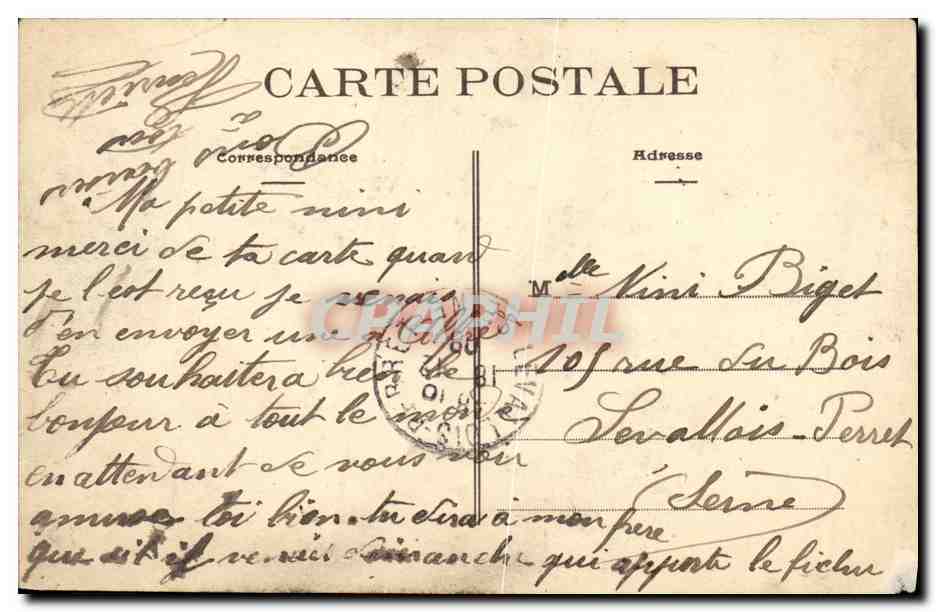 CARTE POSTALE
Correspondance
Adresse
Ma petite nini
merci de ta carte quand
je l'est reçu je venais
d'en envoyer une a
tu souhaitera bien le
bonjour à tout le monde
en attendant de vous voir
amuse toi bien. tu dira à mon frere
que s'il venais dimanche qui apporte le fichu
Bons baisers
à tou
Henriette
Mlle Nini Biget
105 rue du Bois
Levallois-Perret
(Seine)
LEVALLOIS-PERRET
CPAPHIL